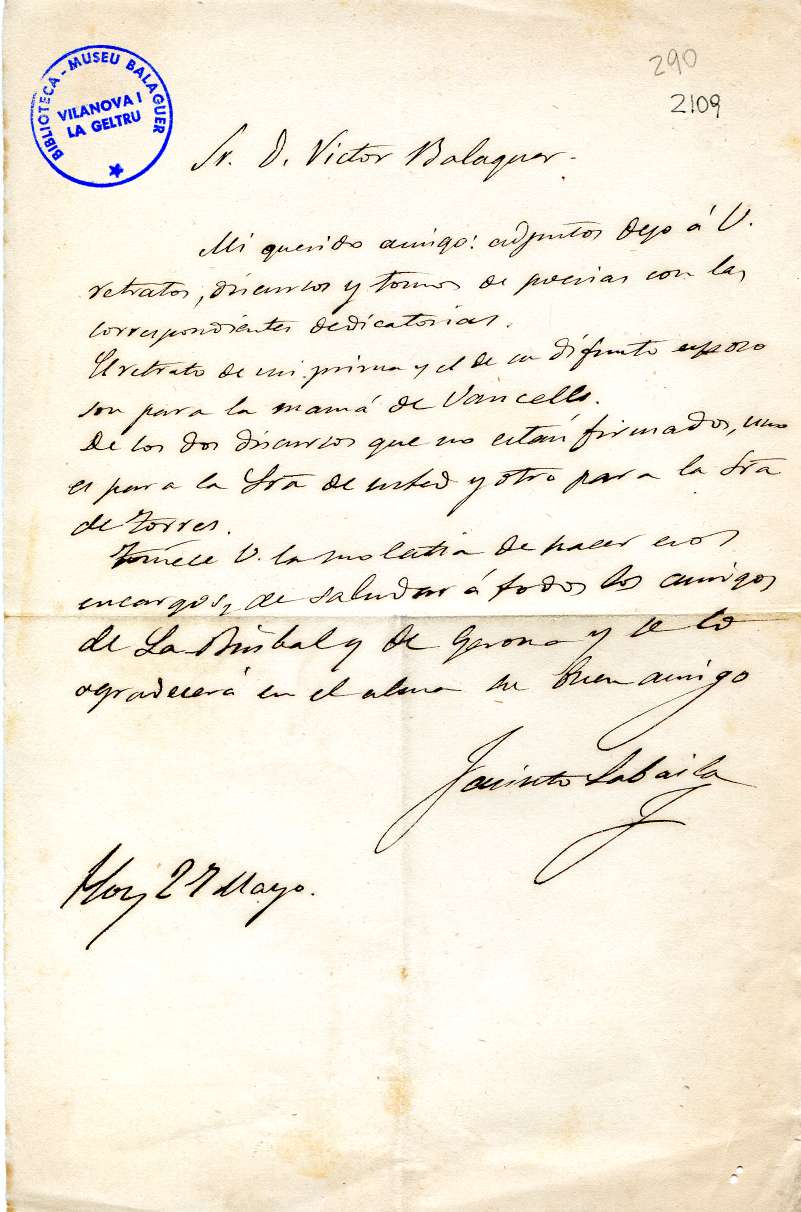 BIBLIOTECA - MUSEU BALAGUER
VILANOVA I
LA GELTRU
290
2109
Sr. D. Victor Balaguer.
Mi querido amigo: adjuntos dejo á V.
retratos, discursos y tomos de poesias con las
correspondientes dedicatorias.
El retrato de mi prima y el de su difunto esposo
son para la mamá de Vancells.
De los dos discursos que no están firmados, uno
es para la Sra de usted y otro para la Sra
de Torres.
Tómese V. la molestia de hacer esos
encargos, de saludar á todos los amigos
de La Bisbal y de Gerona y se lo
agradecerá en el alma su buen amigo
Jacinto Labaila
Hoy 27 Mayo.